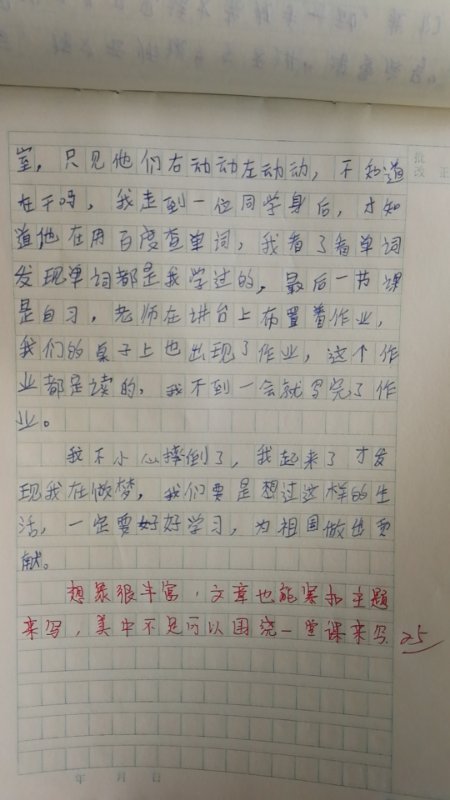 室，只见他们右动动左动动，不知道
在干吗，我走到一位同学身后，才知
道他在用百度查单词，我看了看单词
发现单词都是我学过的，最后一节课
是自习，老师在讲台上布置着作业，
我们的桌子上也出现了作业，这个作
业都是读的，我不到一会就写完了作
业。
我不小心摔倒了，我起来了才发
现我在做梦，我们要是想过这样的生
活，一定要好好学习，为祖国做出贡
献。
想象很丰富，文章也能紧扣主题
来写，美中不足可以围绕一堂课来写
25
批
改 正
年 月 日